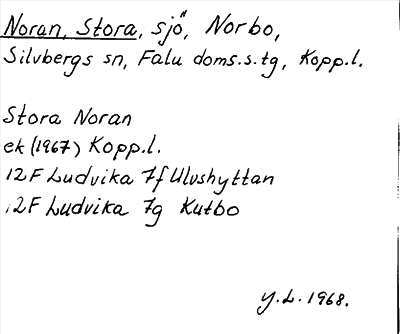 Noran, Stora, sjö, Norbo,
Silvbergs sn, Falu doms.s.tg, Kopp.l.
Stora Noran
ek (1967) Kopp.l.
12F Ludvika 7f Ulvshyttan
12F Ludvika 7g Kutbo
Y.L. 1968.